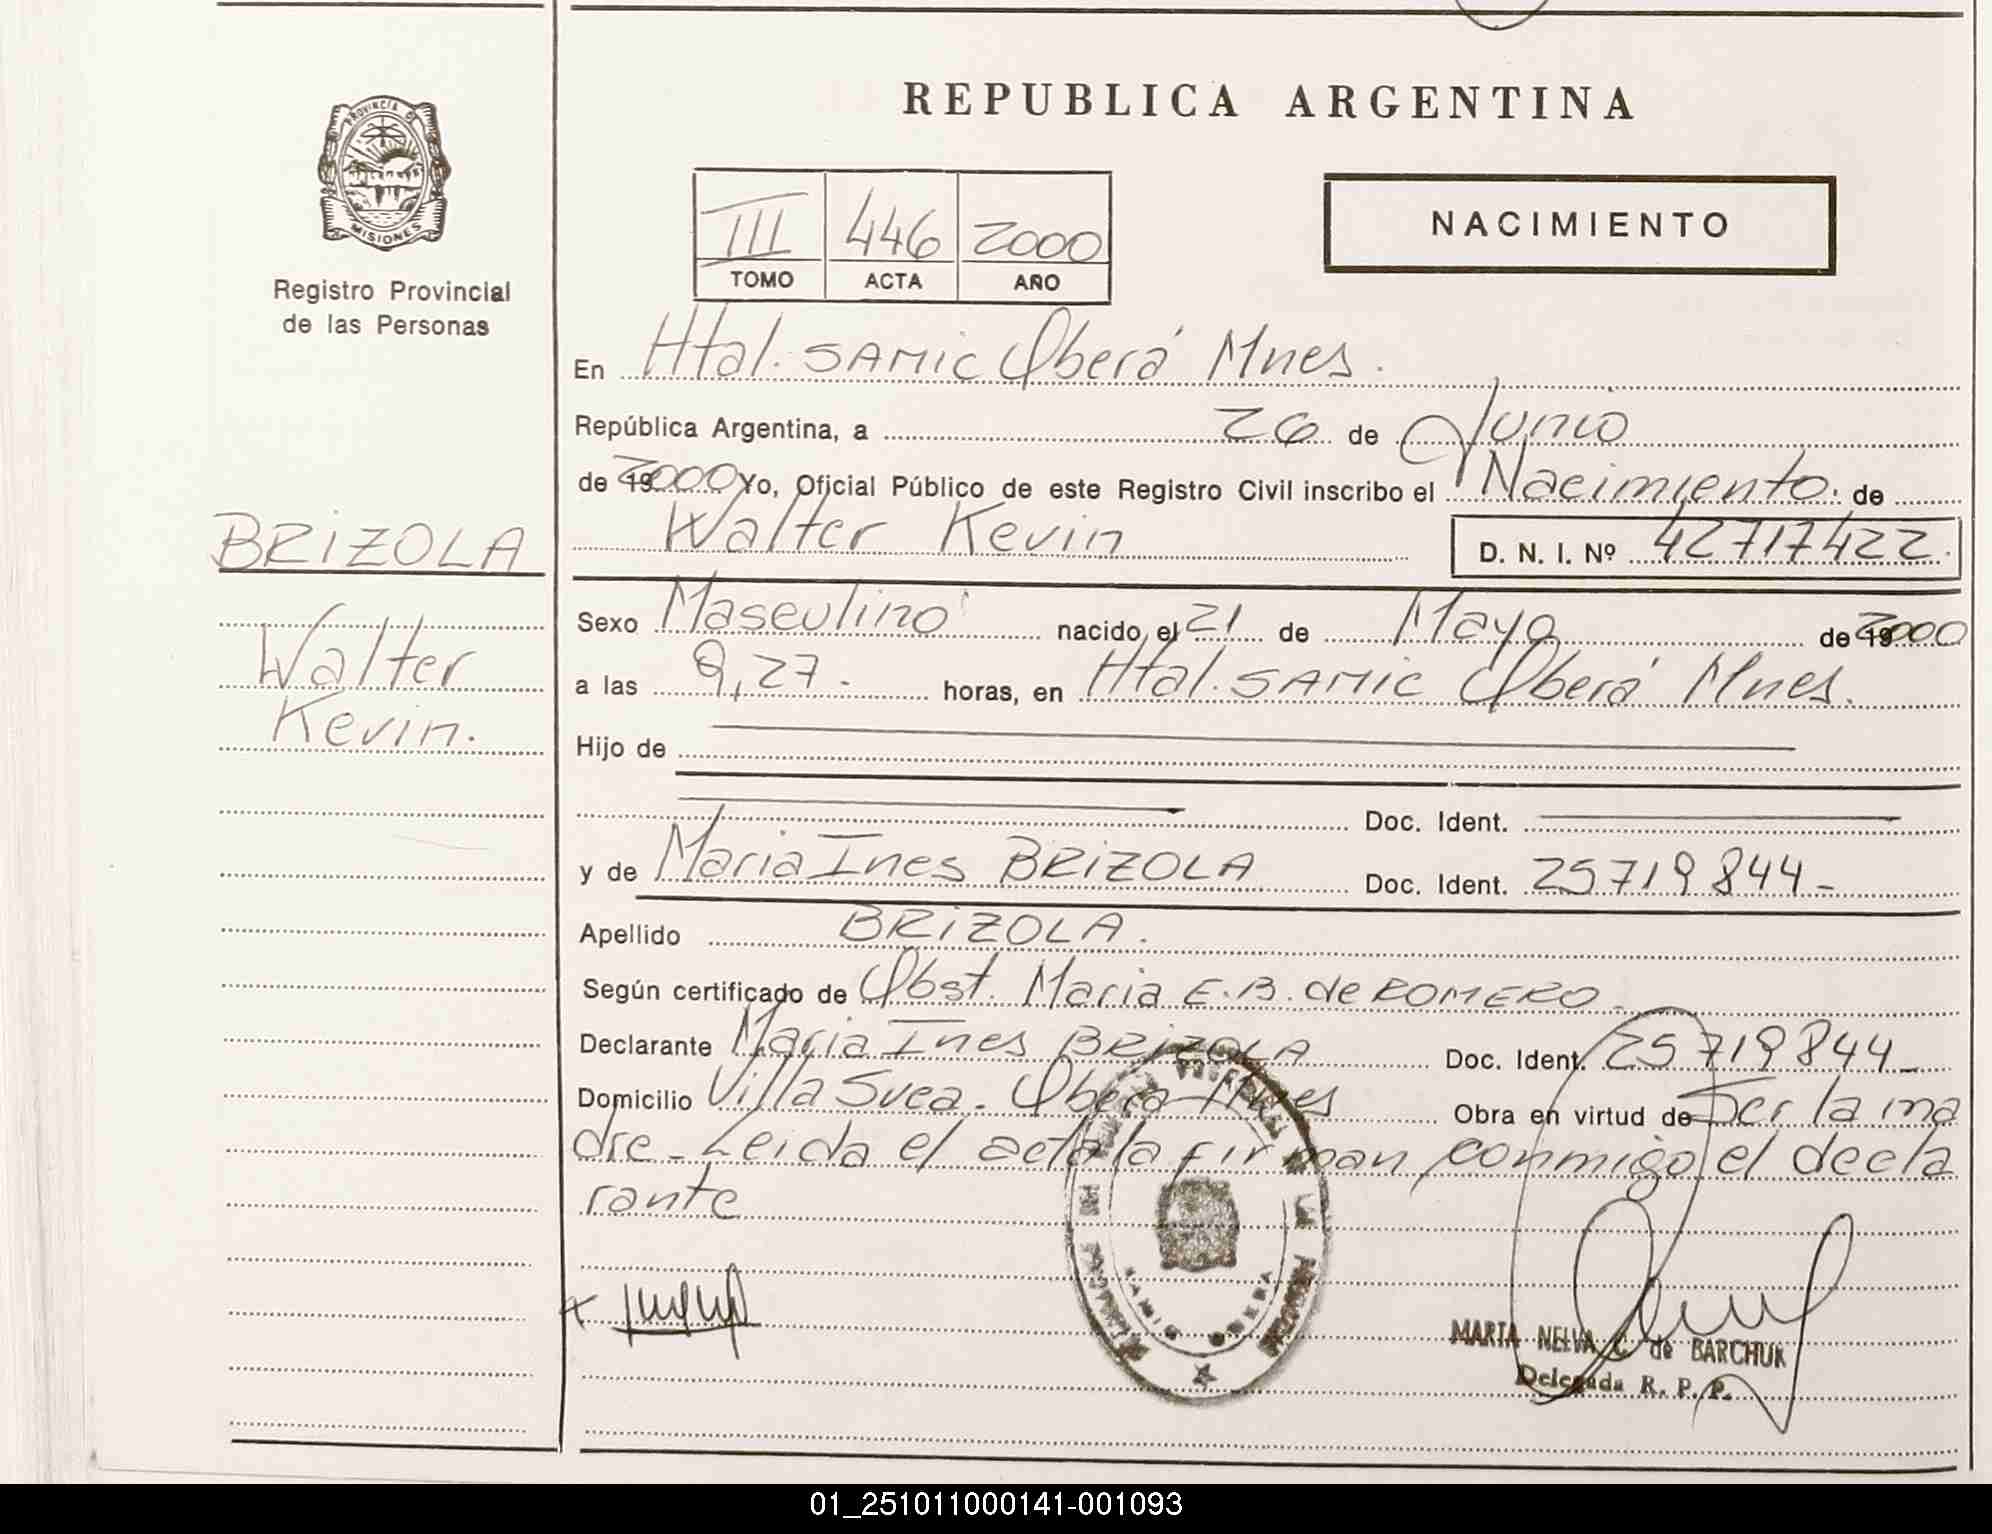 REPUBLICA ARGENTINA
PROVINCIA DE
MISIONES
Registro Provincial
de las Personas
III 446 2000
TOMO ACTA AÑO
NACIMIENTO
En Htal. SAMIC Oberá Mnes.
República Argentina, a 26 de Junio
de 19 2000 Yo, Oficial Público de este Registro Civil inscribo el Nacimiento de
BRIZOLA
Walter Kevin D. N. I. Nº 42717422.
Sexo Masculino nacido el 21 de Mayo de 19 2000
Walter
a las 9,27.- horas, en Htal. SAMIC Oberá Mnes.
Kevin.
Hijo de
Doc. Ident.
y de Maria Ines BRIZOLA Doc. Ident. 25719844-
Apellido BRIZOLA.
Según certificado de Obst. Maria E.B. de ROMERO.
Declarante Maria Ines BRIZOLA Doc. Ident. 25719844_
Domicilio Villa Svea. Oberá Mnes Obra en virtud de Ser la ma
dre_ Leida el acta la firman conmigo el decla
rante
x
SAMIC OBERA
MARIA NELVA C. de BARCHUK
Delegada R. P. P.
01_251011000141-001093